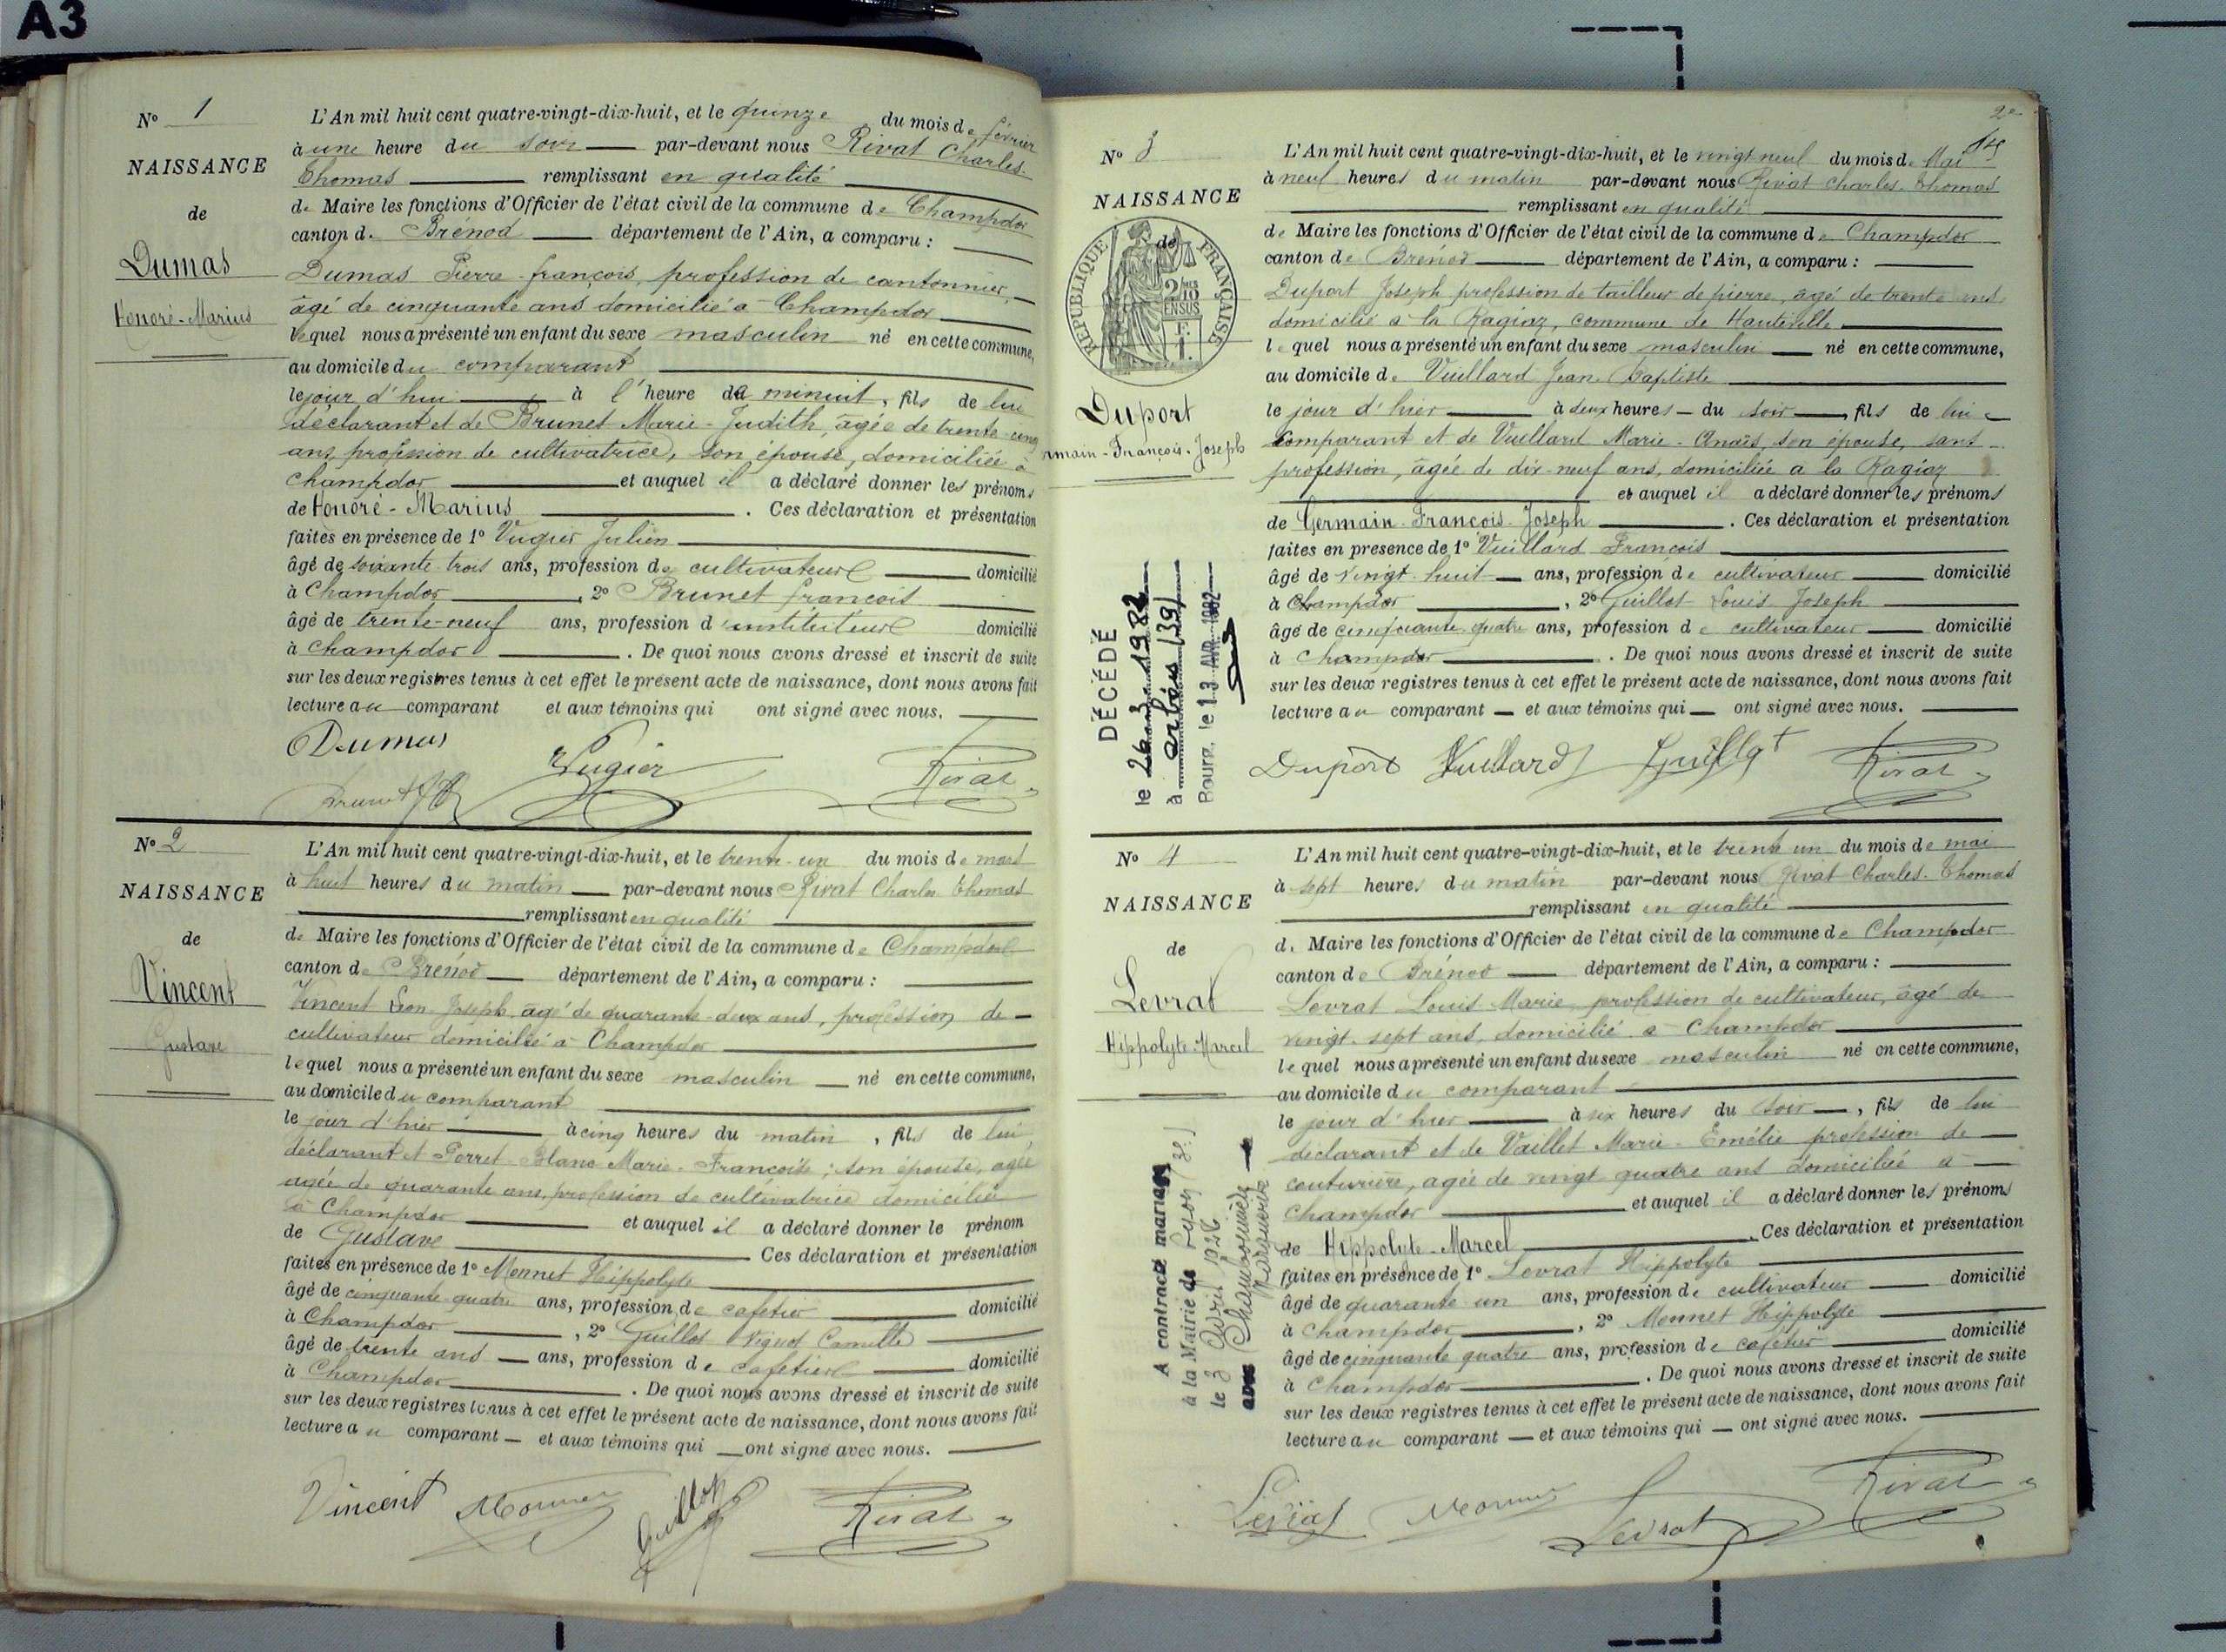 A3
N° 1
NAISSANCE
de
Dumas
Honoré-Marius
L'An mil huit cent quatre-vingt-dix-huit, et le quinze du mois de février
à une heure du soir par-devant nous Rivat Charles-
Thomas remplissant en qualité
de Maire les fonctions d'Officier de l'état civil de la commune de Champdor
canton de Brénod département de l'Ain, a comparu :
Dumas Pierre-françois, profession de cantonnier,
âgé de cinquante ans domicilié à Champdor
lequel nous a présenté un enfant du sexe masculin né en cette commune,
au domicile du comparant
le jour d'hui à l'heure de minuit, fils de lui
déclarant et de Brunet Marie-Judith, âgée de trente-cinq
ans, profession de cultivatrice, son épouse, domiciliée à
Champdor et auquel il a déclaré donner les prénoms
de Honoré-Marius. Ces déclaration et présentation
faites en présence de 1° Vugier Julien
âgé de soixante trois ans, profession de cultivateur domicilié
à Champdor, 2° Brunet françois
âgé de trente-neuf ans, profession d'instituteur domicilié
à Champdor. De quoi nous avons dressé et inscrit de suite
sur les deux registres tenus à cet effet le présent acte de naissance, dont nous avons fait
lecture au comparant et aux témoins qui ont signé avec nous.
Dumas Vugier Rivat
Brunet
N° 2
NAISSANCE
de
Vincent
Gustave
L'An mil huit cent quatre-vingt-dix-huit, et le trente-un du mois de mars
à huit heures du matin par-devant nous Rivat Charles Thomas
remplissant en qualité
de Maire les fonctions d'Officier de l'état civil de la commune de Champdor
canton de Brénod département de l'Ain, a comparu :
Vincent Léon Joseph âgé de quarante-deux ans, profession de
cultivateur domicilié à Champdor
lequel nous a présenté un enfant du sexe masculin né en cette commune,
au domicile du comparant
le jour d'hier à cinq heures du matin, fils de lui
déclarant et Perret-Blanc Marie-Françoise ; son épouse, agée
agée de quarante ans, profession de cultivatrice domiciliée
à Champdor et auquel il a déclaré donner le prénom
de Gustave Ces déclaration et présentation
faites en présence de 1° Monnet Hippolyte
âgé de cinquante quatre ans, profession de cafetier domicilié
à Champdor, 2° Guillot Camille
âgé de trente ans ans, profession de cafetier domicilié
à Champdor. De quoi nous avons dressé et inscrit de suite
sur les deux registres tenus à cet effet le présent acte de naissance, dont nous avons fait
lecture au comparant et aux témoins qui ont signé avec nous.
Vincent Monnet Guillot Rivat
N° 3
NAISSANCE
de
REPUBLIQUE FRANÇAISE
Duport
rmain-François-Joseph
L'An mil huit cent quatre-vingt-dix-huit, et le vingt neuf du mois de Mai
à neuf heures du matin par-devant nous Rivat Charles-Thomas
remplissant en qualité
de Maire les fonctions d'Officier de l'état civil de la commune de Champdor
canton de Brénod département de l'Ain, a comparu :
Duport Joseph profession de tailleur de pierre, âgé de trente ans
domicilié à la Ragiaz, commune de Hauteville
lequel nous a présenté un enfant du sexe masculin né en cette commune,
au domicile de Vuillard Jean Baptiste
le jour d'hier à deux heures du soir, fils de lui
comparant et de Vuillard Marie-Anaïs son épouse, sans
profession, âgée de dix-neuf ans, domiciliée à la Ragiaz
et auquel il a déclaré donner les prénoms
de Germain-François-Joseph. Ces déclaration et présentation
faites en présence de 1° Vuillard François
âgé de vingt-huit ans, profession de cultivateur domicilié
à Champdor, 2° Guillot Louis Joseph
âgé de cinquante quatre ans, profession de cultivateur domicilié
à Champdor. De quoi nous avons dressé et inscrit de suite
sur les deux registres tenus à cet effet le présent acte de naissance, dont nous avons fait
lecture au comparant et aux témoins qui ont signé avec nous.
Duport Vuillard Guillot Rivat
DÉCÉDÉ
à Arbois (39)
Bourg, le 13 AVR. 1982
N° 4
NAISSANCE
de
Levrat
Hippolyte-Marcel
L'An mil huit cent quatre-vingt-dix-huit, et le trente un du mois de mai
à sept heures du matin par-devant nous Rivat Charles-Thomas
remplissant en qualité
de Maire les fonctions d'Officier de l'état civil de la commune de Champdor
canton de Brénod département de l'Ain, a comparu :
Levrat Louis-Marie, profession de cultivateur, âgé de
vingt-sept ans, domicilié à Champdor
lequel nous a présenté un enfant du sexe masculin né en cette commune,
au domicile du comparant
le jour d'hier à six heures du soir, fils de lui
déclarant et de Vaillet Marie-Emélie profession de
couturière, agée de vingt quatre ans domiciliée à
Champdor et auquel il a déclaré donner les prénoms
de Hippolyte-Marcel. Ces déclaration et présentation
faites en présence de 1° Levrat Hippolyte
âgé de quarante-un ans, profession de cultivateur domicilié
à Champdor, 2° Monnet Hippolyte
âgé de cinquante quatre ans, profession de cafetier domicilié
à Champdor. De quoi nous avons dressé et inscrit de suite
sur les deux registres tenus à cet effet le présent acte de naissance, dont nous avons fait
lecture au comparant et aux témoins qui ont signé avec nous.
Levrat Monnet Levrat Rivat
A contracté mariage
à la Mairie de Lyon (3e)
le 3 Avril 1926
avec
Marguerite